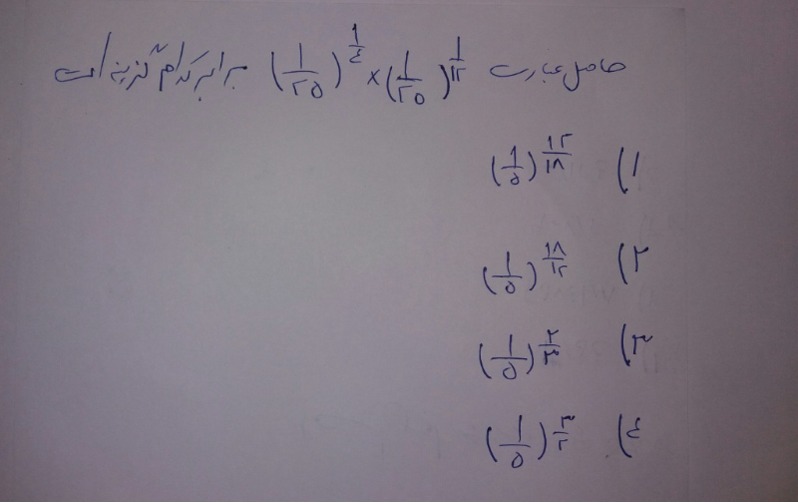 حاصل عبارت (۱/۲۵)^(۱/٤) × (۱/۲۵)^(۱/۱۲) برابر کدام گزینه است
۱) (۱/۵)^(۱۲/۱۸)
۲) (۱/۵)^(۱۸/۱۲)
۳) (۱/۵)^(۲/۳)
٤) (۱/۵)^(۳/۲)